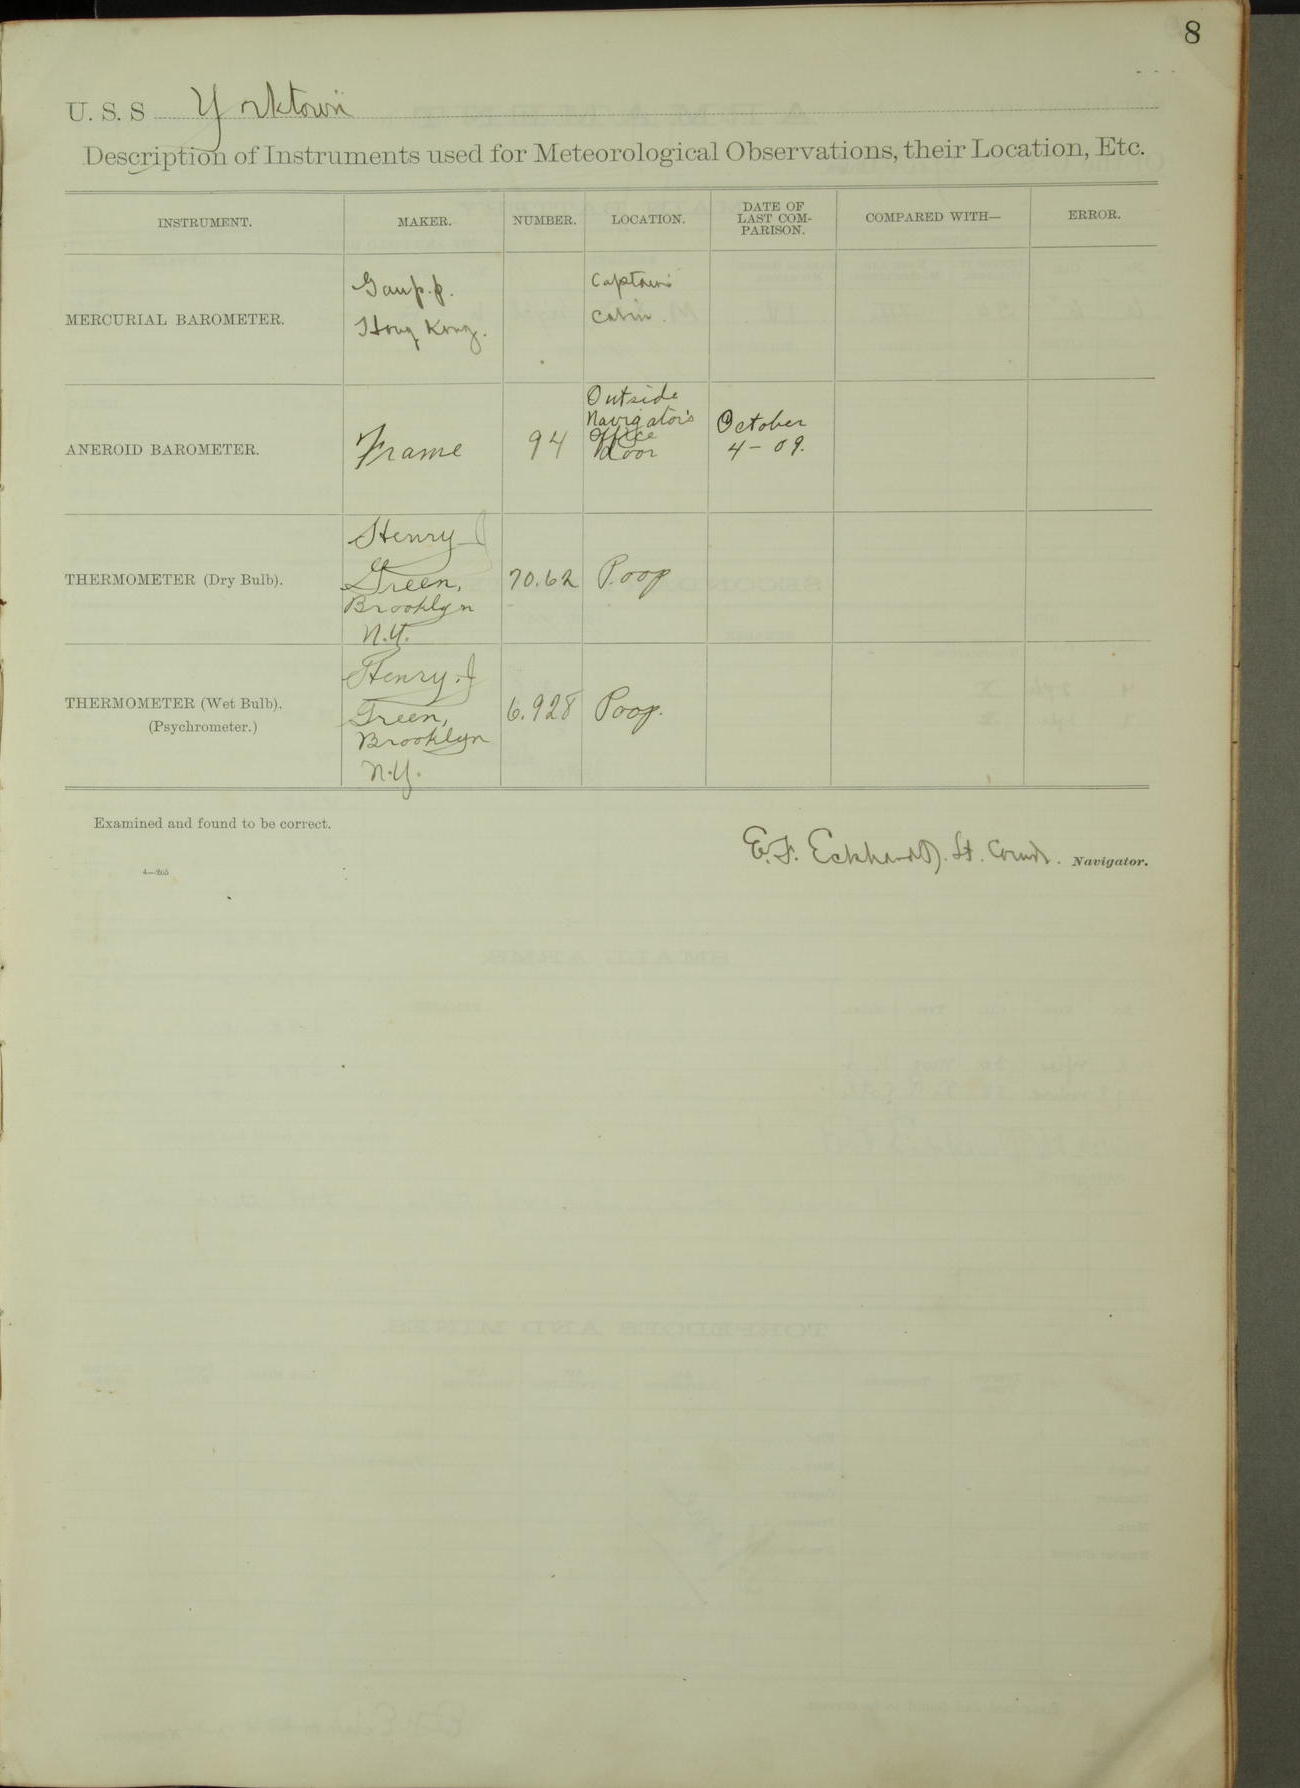 8
U. S. S. Yorktown
Description of Instruments used for Meteorological Observations, their Location, Etc.
INSTRUMENT. MAKER. NUMBER. LOCATION. DATE OF LAST COM- PARISON. COMPARED WITH— ERROR.
MERCURIAL BAROMETER. Gaupp. Hong Kong. Captain's Cabin.
ANEROID BAROMETER. Frame 94 Outside Navigator's Office door October 4-09.
THERMOMETER (Dry Bulb). Henry J Green, Brooklyn N.Y. 70.62 Poop
THERMOMETER (Wet Bulb). (Psychrometer.) Henry J Green, Brooklyn N.Y. 6.928 Poop.
Examined and found to be correct.
E.F. Eckhardt. Lt. Comdr. Navigator.
4—265